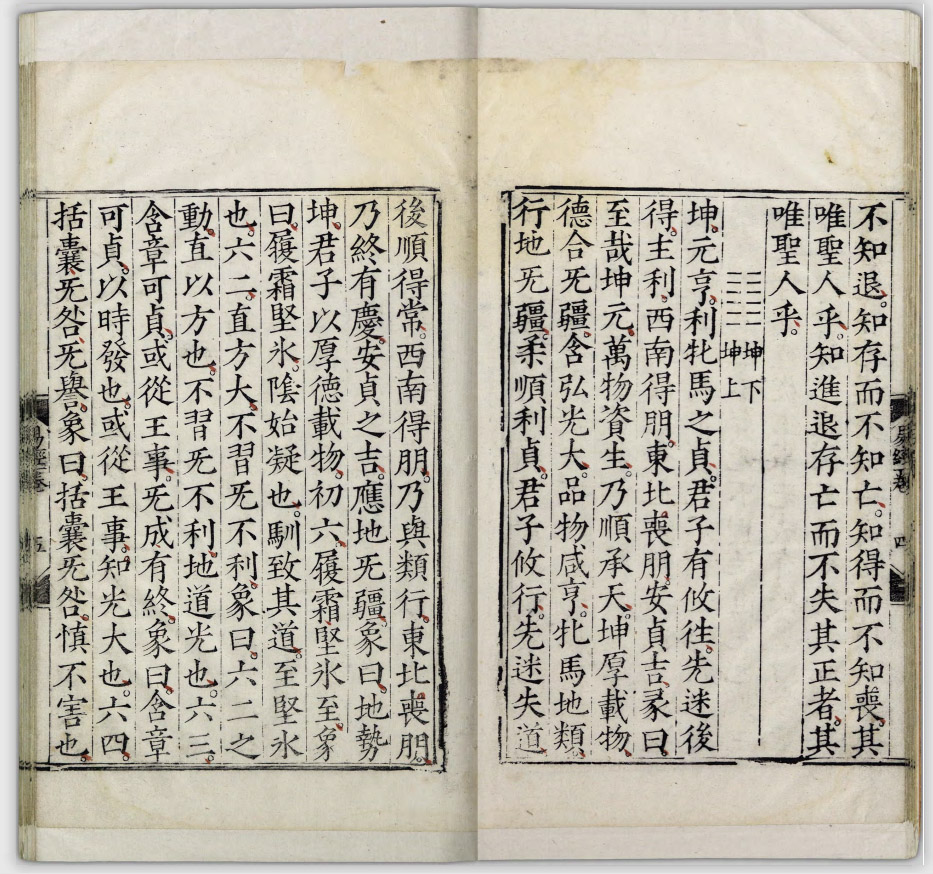 不知退知存而不知亡知得而不知喪其
唯聖人乎知進退存亡而不失其正者其
唯聖人乎
坤下
坤上
坤元亨利牝馬之貞君子有攸往先迷後
得主利西南得朋東北喪朋安貞吉彖曰
至哉坤元萬物資生乃順承天坤厚載物
德合无疆含弘光大品物咸亨牝馬地類
行地无疆柔順利貞君子攸行先迷失道
後順得常西南得朋乃與類行東北喪朋
乃終有慶安貞之吉應地无疆象曰地勢
坤君子以厚德載物初六履霜堅氷至象
曰履霜堅氷隂始凝也馴致其道至堅氷
也六二直方大不習无不利象曰六二之
動直以方也不習无不利地道光也六三
含章可貞或從王事无成有終象曰含章
可貞以時發也或從王事知光大也六四
括囊无咎无譽象曰括囊无咎慎不害也
易經卷
四
易經卷
五